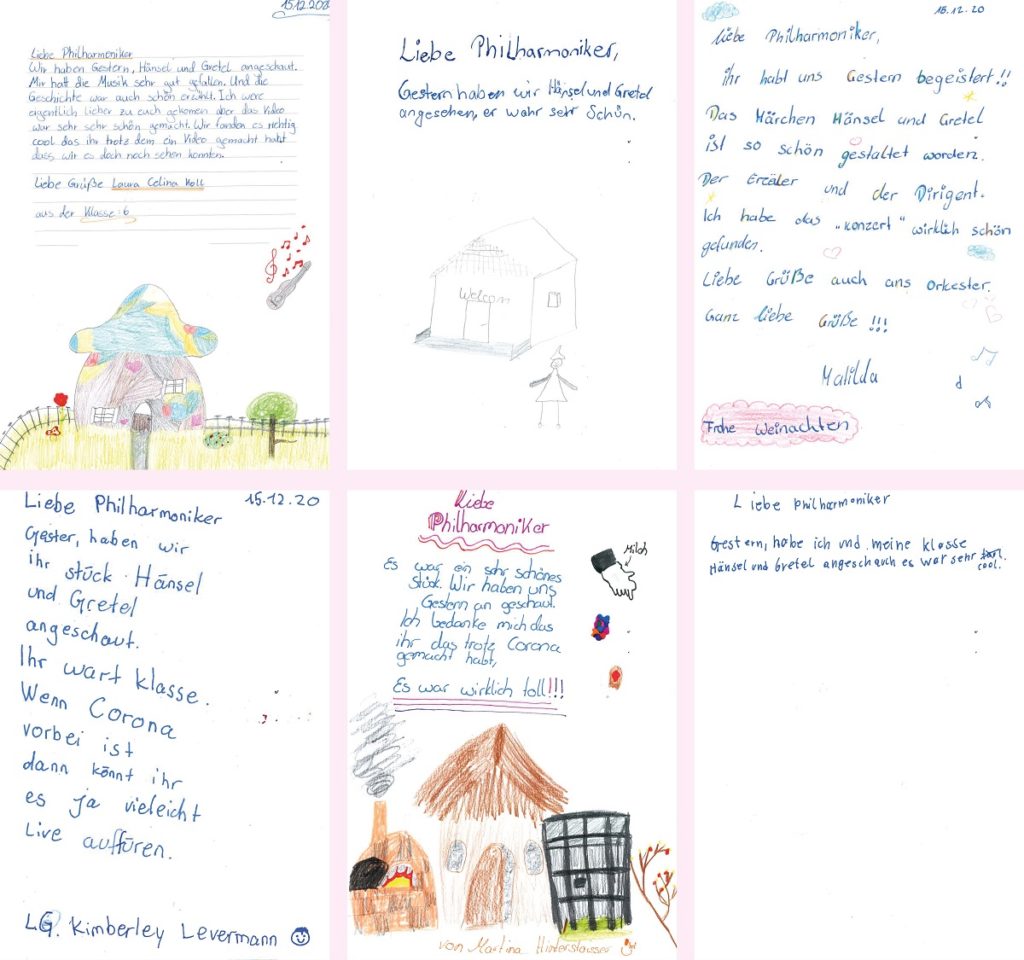 15.12.202
Liebe Philharmoniker
Wir haben Gestern, Hänsel und Gretel angeschaut.
Mir hatt die Musik sehr gut gefallen. Und die
Geschichte war auch schön erzählt. Ich were
eigentlich licher zu euch gekomen aber das Video
war sehr sehr schön gemacht. Wir fanden es richtig
cool das ihr trotz dem ein Video gemacht habt
dass wir es doch noch sehen konnten.
Liebe Grüße Laura Celina Koll
aus der Klasse: 6
Liebe Philharmoniker,
Gestern haben wir Hänsel und Gretel
angesehen, er wahr sehr Schön.
Welcom
15.12.20
Liebe Philharmoniker,
ihr habt uns Gestern begeistert!!
Das Märchen Hänsel und Gretel
ist so schön gestaltet worden.
Der Erzäler und der Dirigent.
Ich habe das „Konzert“ wirklich schön
gefunden.
Liebe Grüße auch ans orkester.
Ganz liebe Grüße !!!
Matilda
Frohe Weinachten
15.12.20
Liebe Philharmoniker
Gester, haben wir
ihr stück Hänsel
und Gretel
angeschaut.
Ihr wart klasse.
Wenn Corona
vorbei ist
dann könnt ihr
es ja vieleicht
Live auffüren.
LG. Kimberley Levermann
Liebe
Philharmoniker
Milch
Es war ein sehr schönes
Stück. Wir haben uns
Gestern an geschaut.
Ich bedanke mich das
ihr das trotz Corona
gemacht habt,
Es war wirklich toll!!!
von Martina Hinterstasser
Liebe philharmoniker
Gestern, habe ich und meine klasse
Hänsel und Gretel angeschauch es war sehr
cool.